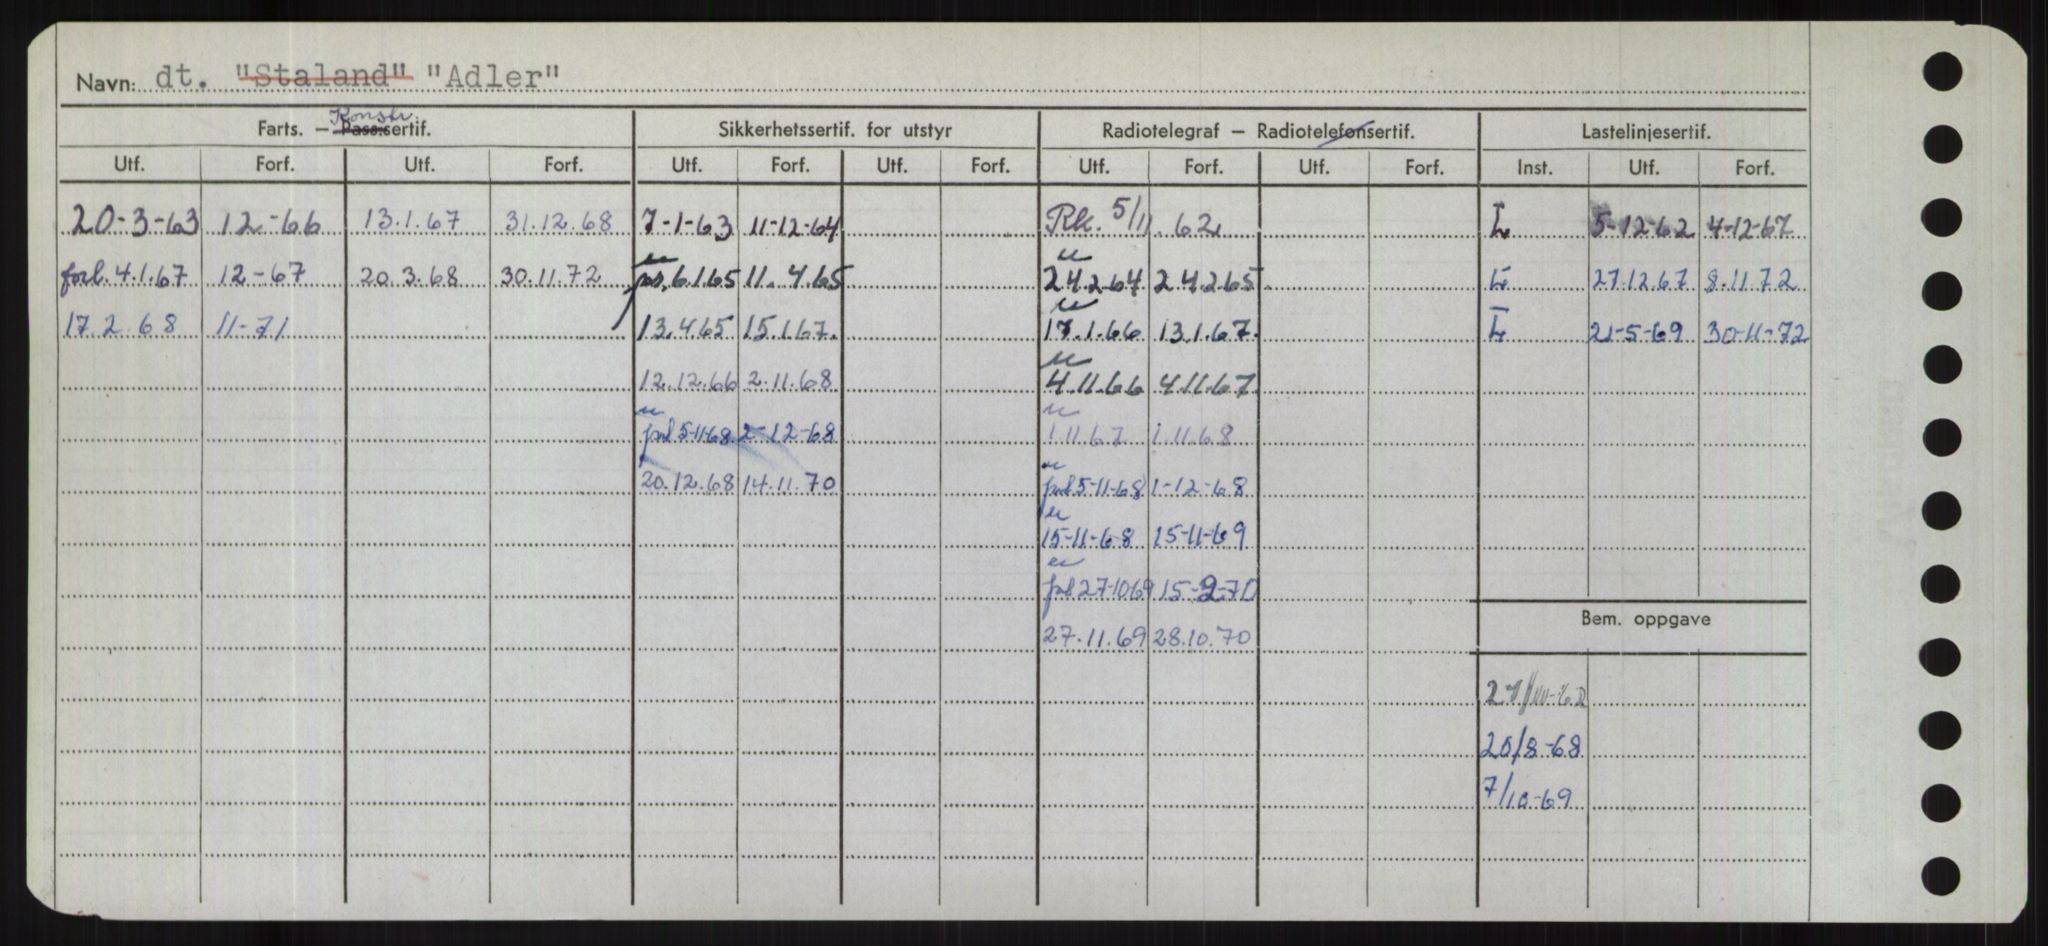 Navn: dt. "Staland" "Adler"
Konstr.
Farts. — Pass.sertif. Sikkerhetssertif. for utstyr Radiotelegraf — Radiotelefonsertif. Lastelinjesertif.
Utf. Forf. Utf. Forf. Utf. Forf. Utf. Forf. Utf. Forf. Utf. Forf. Inst. Utf. Forf.
20-3-63 12-66 13.1.67 31.12.68 7-1-63 11-12-64 Rk. 5/11.62 L 5-12-62 4-12-67
forl. 4.1.67 12-67 20.3.68 30.11.72 6.1.65 11.4.65 24.2.64 24.2.65 L 27.12.67 8.11.72
17.2.68 11-71 13.4.65 15.1.67. 17.1.66 13.1.67. L 21-5-69 30-11-72
12.12.66 2.11.68 4.11.66 4.11.67
5-11-68 2-12-68 1.11.67 1.11.68
20.12.68 14.11.70 5-11-68 1-12-68
15-11-68 15-11-69
27-10-69 15-2-70
27.11.69 28.10.70
Bem. oppgave
20/8-68
7/10-69